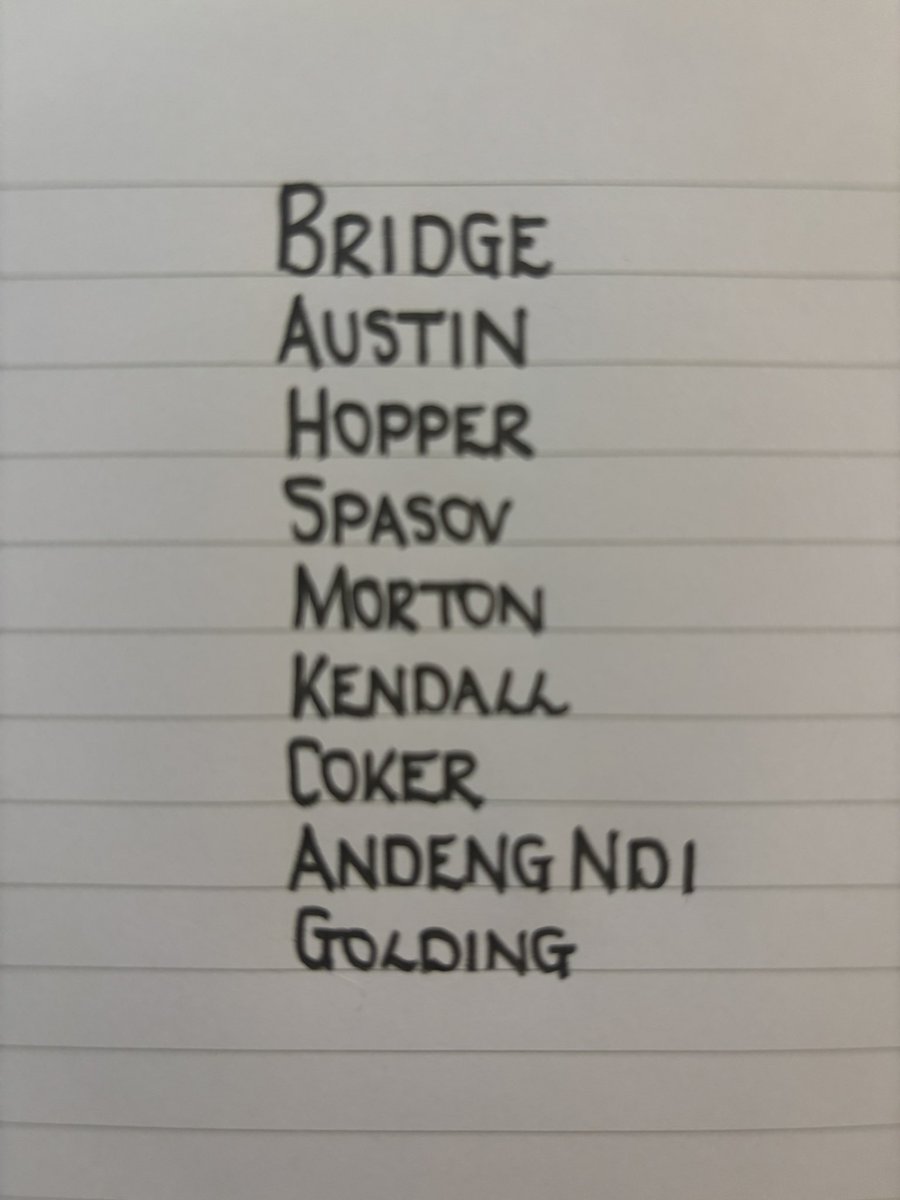 BRIDGE
AUSTIN
HOPPER
SPASOV
MORTON
KENDALL
COKER
ANDENG NDI
GOLDING